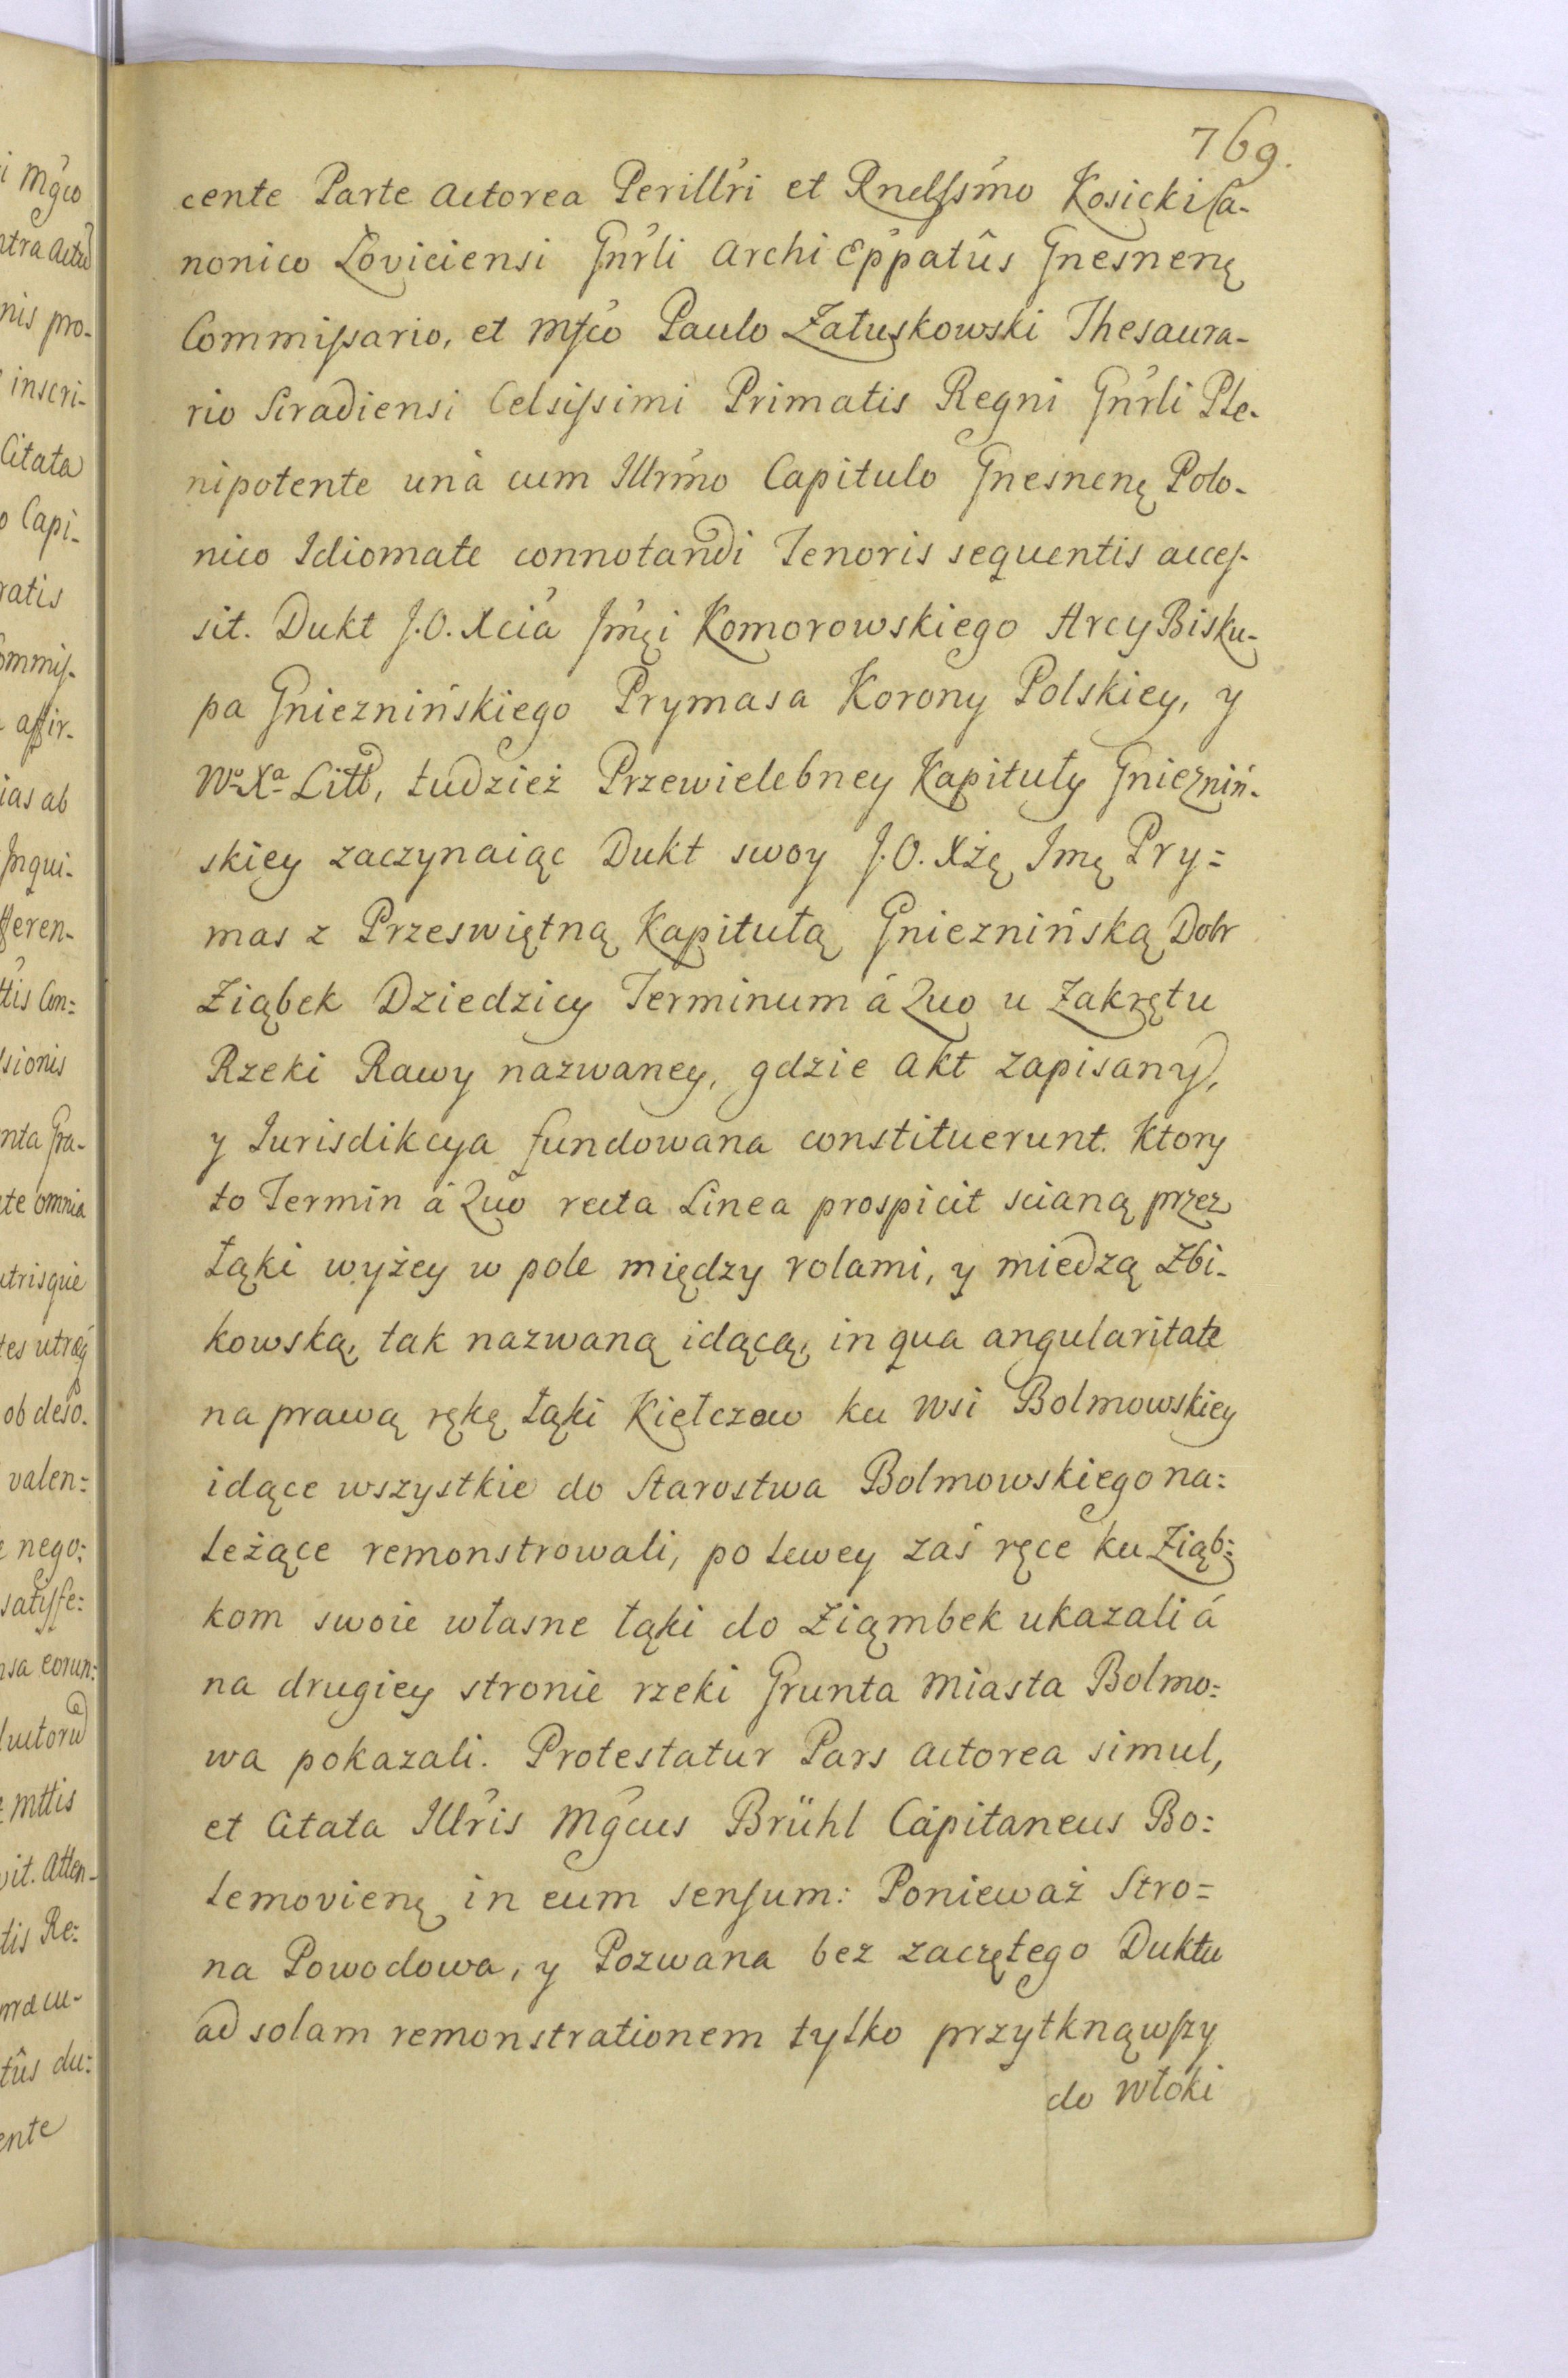 769.
cente Parte Actorea Perillri et Rndssmo Kosicki Ca-
nonico Loviciensi Gnrli Archi Eppatûs Gnesnenę
Commissario, et Mfco Paulo Załuskowski Thesaura-
rio Siradiensi Celsissimi Primatis Regni Gnrli Ple-
nipotente unà cum Illrmo Capitulo Gnesnenę Polo-
nico Idiomate connotandi Tenoris sequentis acces-
sit. Dukt J.O. Xcia Jmci Komorowskiego Arcy Bisku-
pa Gnieznińskiego Prymasa Korony Polskiey, y
Wo Xa Litt, tudzież Przewielebney Kapituły Gniezniń-
skiey zaczynaiąc Dukt swoy J.O. Xżę Jmę Pry=
mas z Przeswiętną Kapitułą Gnieznińską Dobr
Ziąbek Dziedzicy Terminum á Quo u Zakrętu
Rzeki Rawy nazwaney, gdzie Akt zapisany,
y Jurisdikcya fundowana constituerunt. Ktory
to Termin á Quo recta Linea prospicit scianą przez
łąki wyżey w pole między rolami, y miedzą Zbi-
kowską, tak nazwaną idącą, in qua angularitate
na prawą rękę łąki Kiełczew ku Wsi Bolmowskiey
idące wszystkie do Starostwa Bolmowskiego na=
leżące remonstrowali, po lewey zaś ręce ku Ziąb=
kom swoie własne łąki do Ziąmbek ukazali á
na drugiey stronie rzeki Grunta Miasta Bolmo=
wa pokazali. Protestatur Pars Actorea simul,
et Citata Illris Mgcus Brühl Capitaneus Bo=
lemovienę in eum sensum: Ponieważ Stro=
na Powodowa, y Pozwana bez zaczętego Duktu
ad solam remonstrationem tylko przytknąwszy
do Włoki